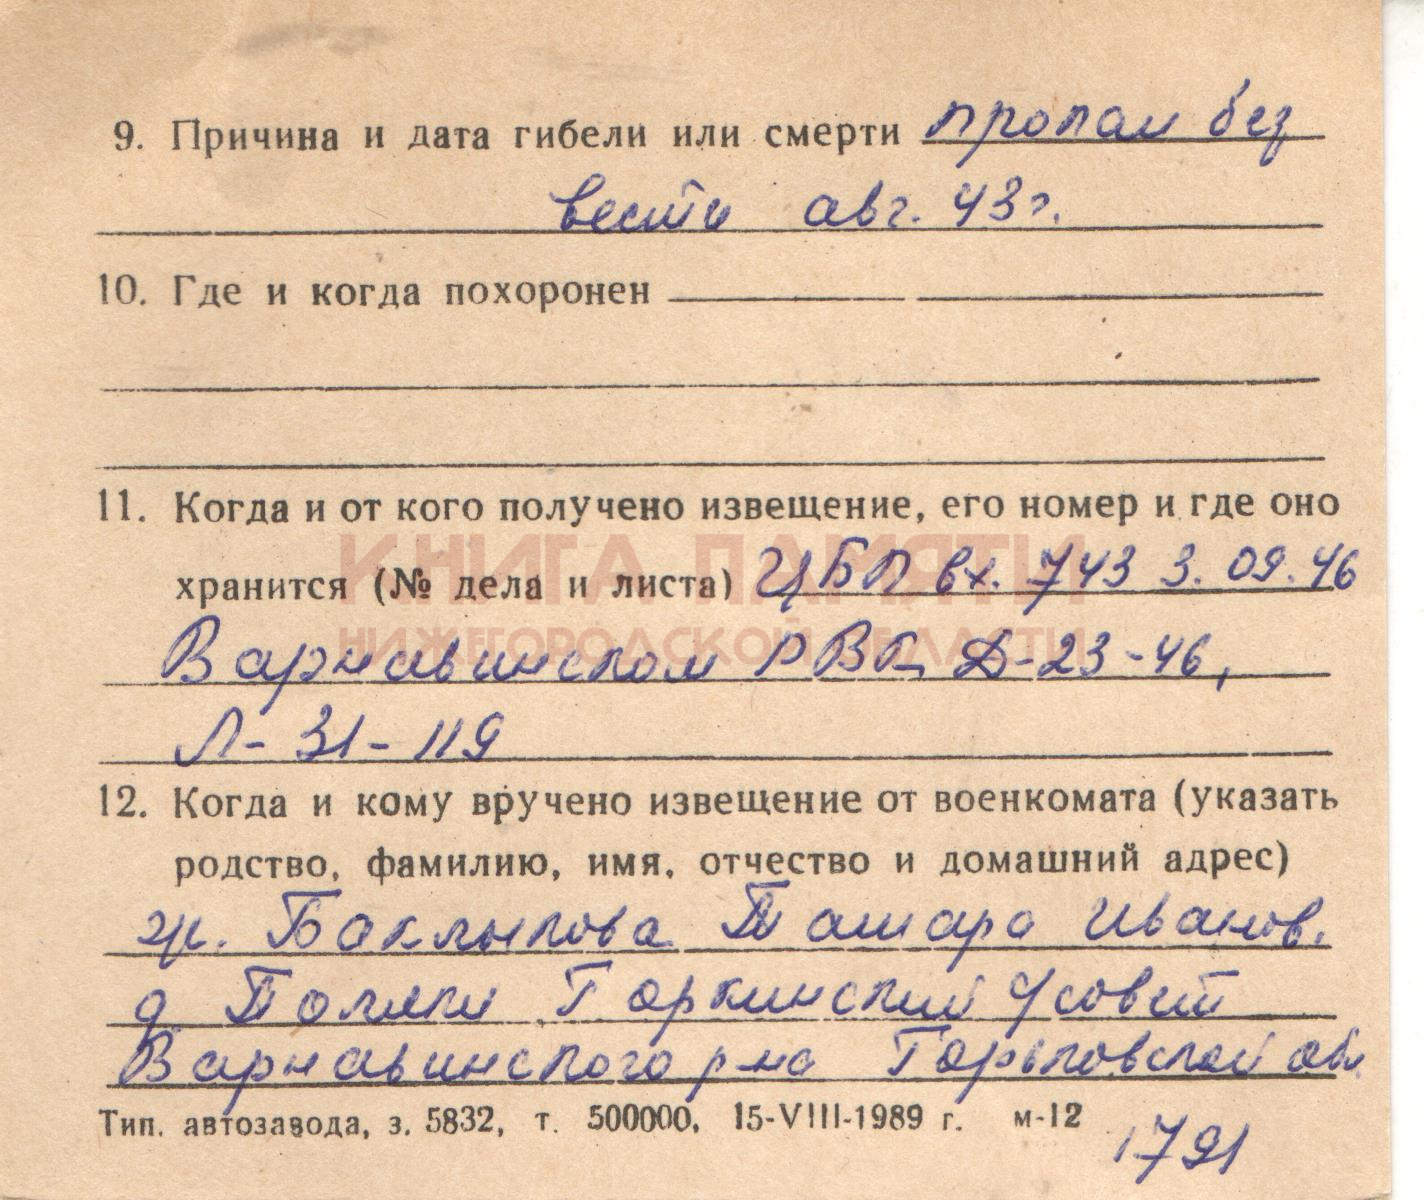 9. Причина и дата гибели или смерти пропал без
вести авг. 43г.
10. Где и когда похоронен
11. Когда и от кого получено извещение, его номер и где оно
КНИГА ПАМЯТИ
хранится (№ дела и листа) ЦБП вх. 743 3.09.46
НИЖЕГОРОДСКОЙ ОБЛАСТИ
Варнавинском РВК Д-23-46,
Л-31-119
12. Когда и кому вручено извещение от военкомата (указать
родство, фамилию, имя, отчество и домашний адрес)
гр. Баклыкова Тамара Иванов.
д Горкинский с/совет
Варнавинского р-на Горьковской обл
Тип. автозавода, з. 5832, т. 500000, 15-VIII-1989 г. м-12
1791